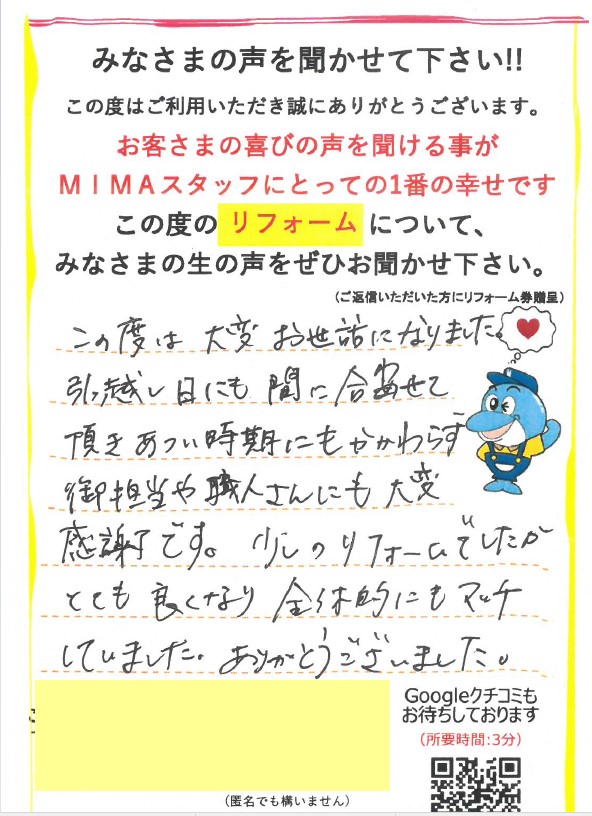 みなさまの声を聞かせて下さい!!
この度はご利用いただき誠にありがとうございます。
お客さまの喜びの声を聞ける事が
MIMAスタッフにとっての1番の幸せです
この度の リフォーム について、
みなさまの生の声をぜひお聞かせ下さい。
(ご返信いただいた方にリフォーム券贈呈)
この度は 大変 お世話になりました。
引越し日にも 間に合わせて
頂きあつい時期にもかかわらず
御担当や職人さんにも 大変
感謝です。 少しのリフォームでしたが
とても 良くなり 全体的にもマッチ
していました。ありがとうございました。
Googleクチコミも
お待ちしております
(所要時間:3分)
(匿名でも構いません)